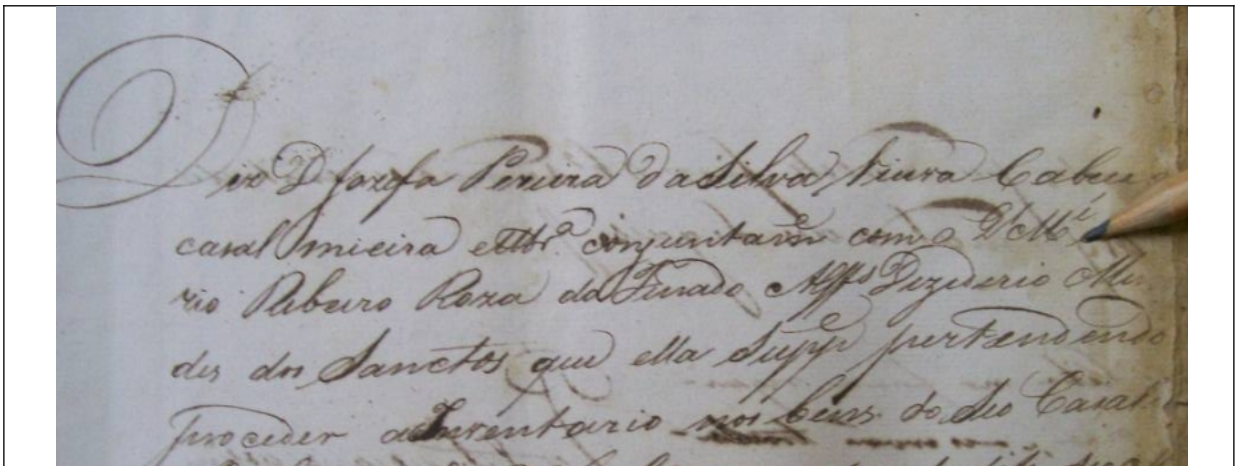 Diz D Jozefa Pereira da Silva Viuva Cabeça
casal mieira e Ttr.ª conjuntam.e com o D.or
rio Ribeiro Roza do Finado Dizederio
des dos Sanctos que ella Supp.e pertendendo
proceder a Inventario nos bens do seo Casal